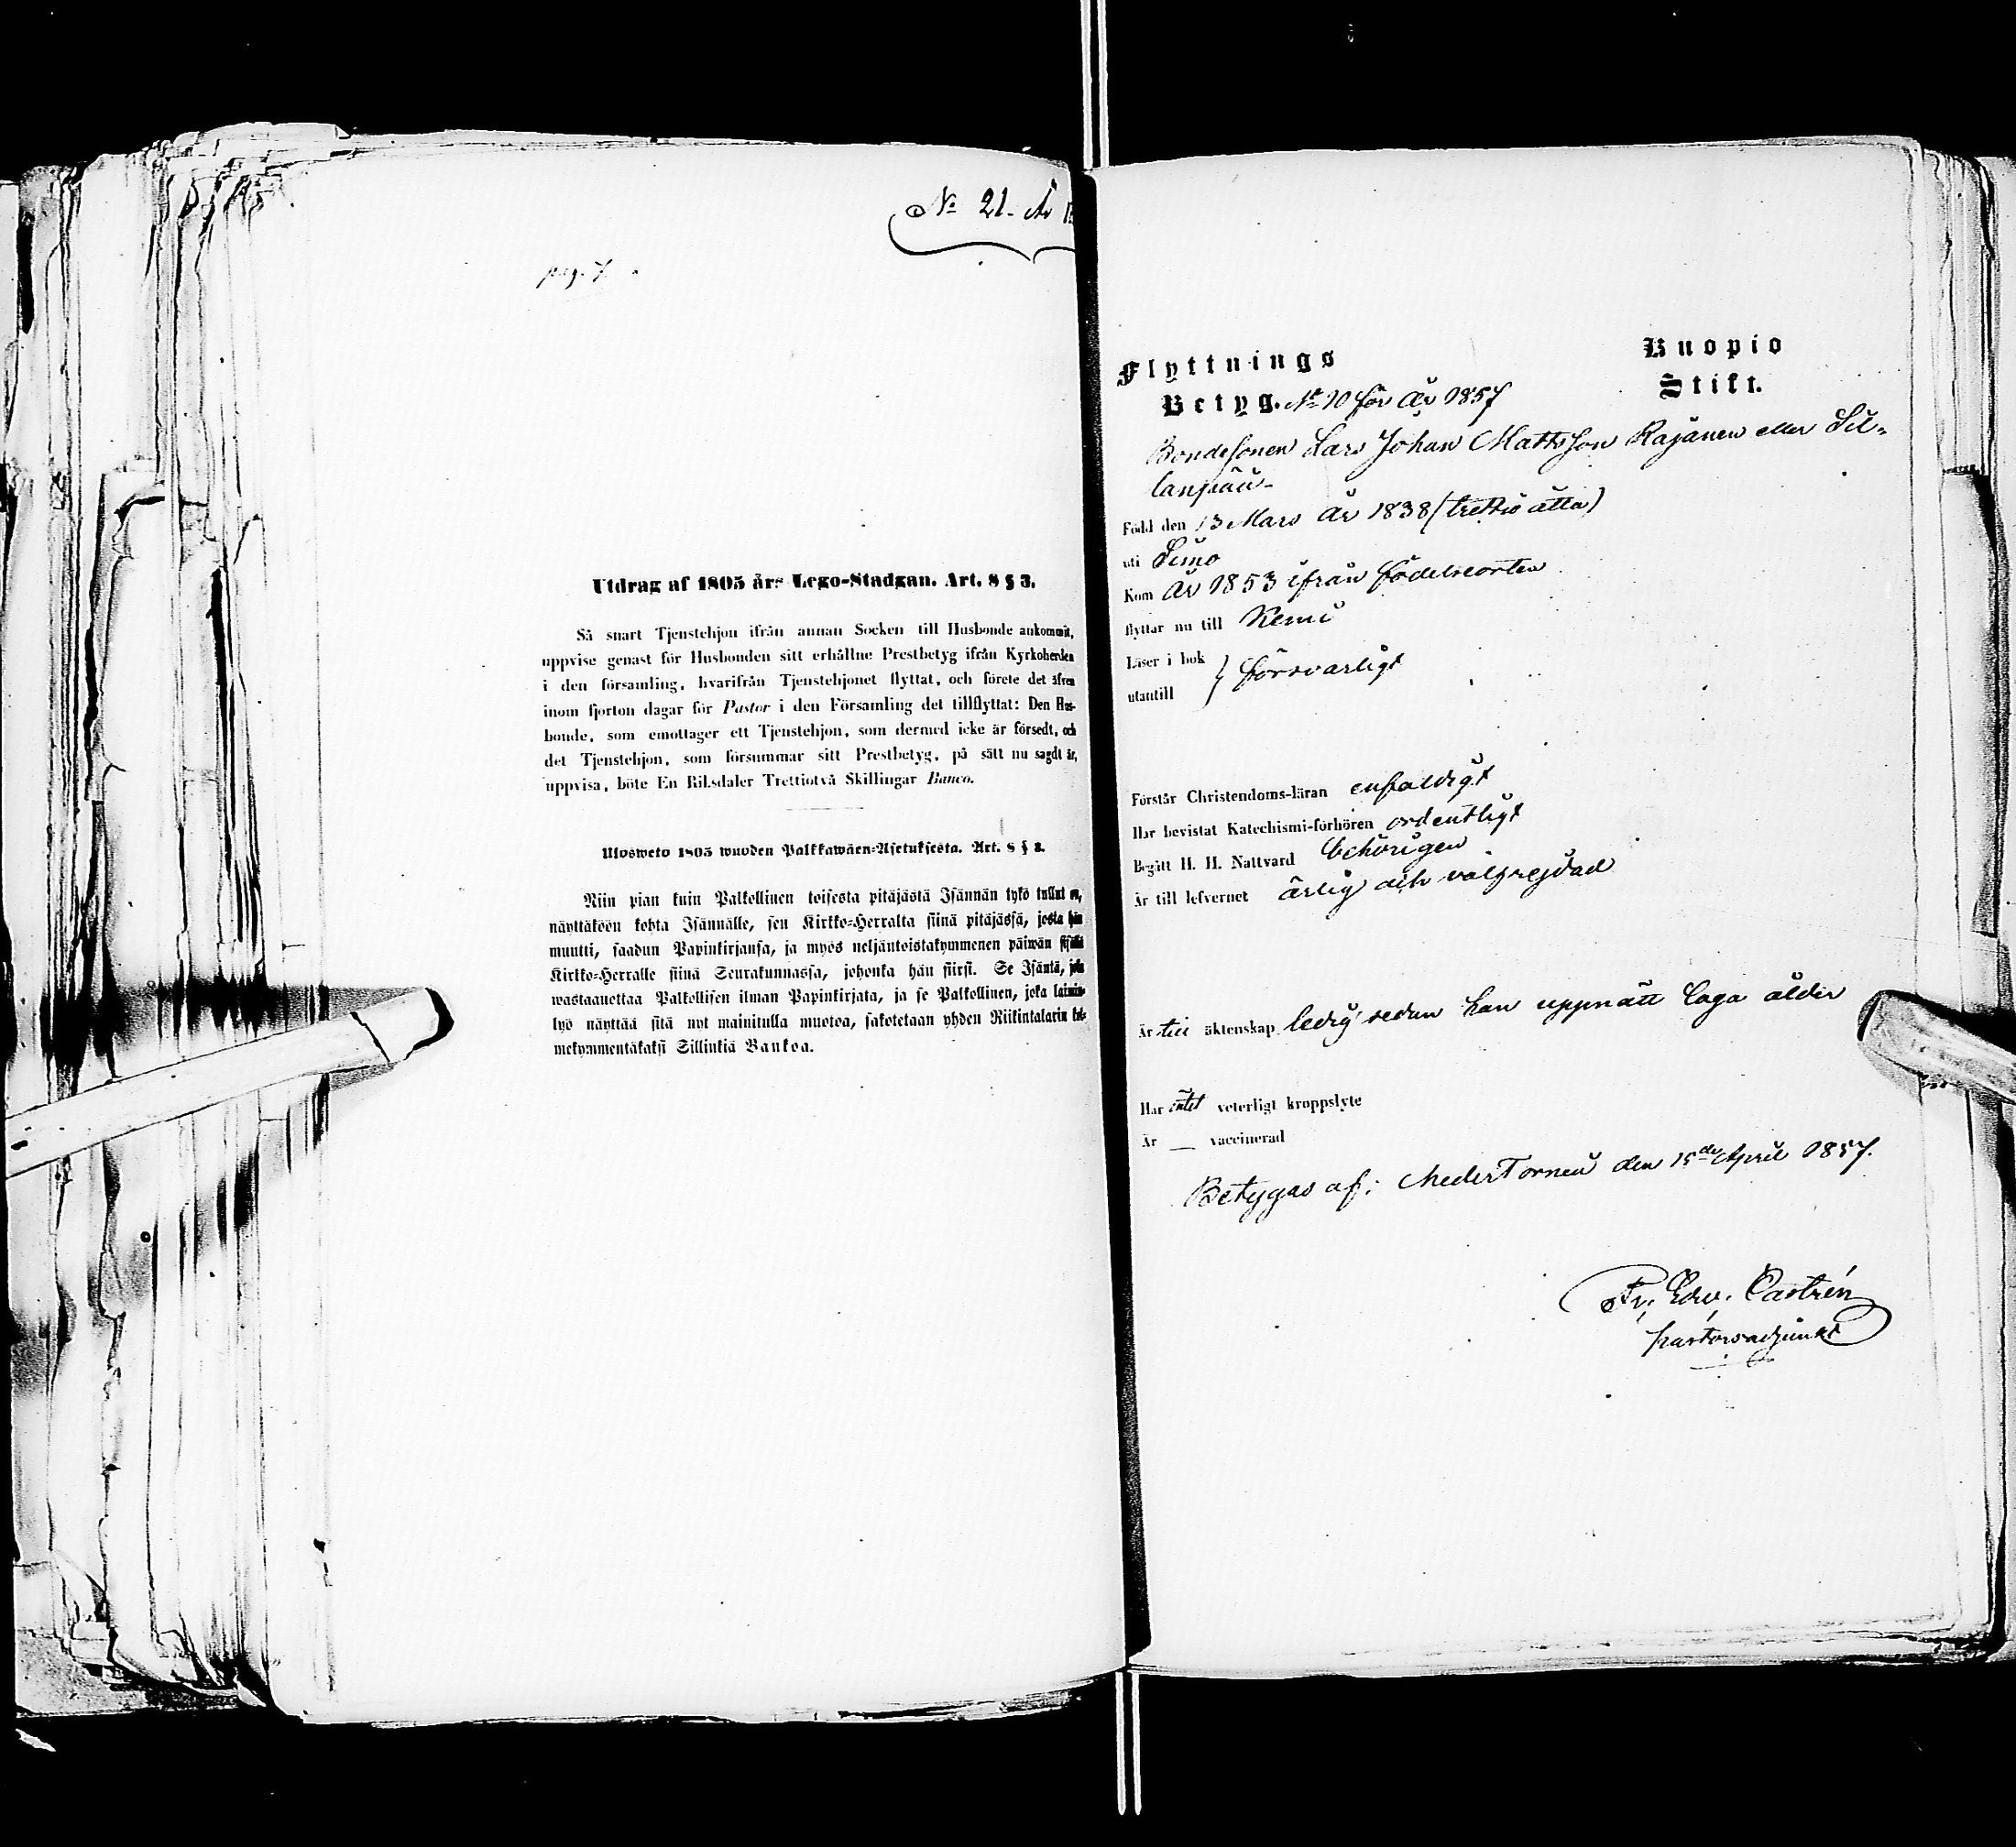 № 21. År
pag. 7.
Utdrag af 1805 års Lego-Stadgan. Art. 8 § 3.
Så snart Tjenstehjon ifrån annan Socken till Husbonde ankommit,
uppvise genast för Husbonden sitt erhållne Prestbetyg ifrån Kyrkoherden
i den församling, hvarifrån Tjenstehjonet flyttat, och förete det äfven
inom fjorton dagar för Pastor i den Församling det tillflyttat: Den Hus-
bonde, som emottager ett Tjenstehjon, som dermed icke är försedt, och
det Tjenstehjon, som försummar sitt Prestbetyg, på sätt nu sagdt är,
uppvisa, böte En Riksdaler Trettiotvå Skillingar Banco.
Ulosweto 1805 wuoden Palkkawäen-Asetuksesta. Art. 8 § 3.
Niin pian kuin Palkollinen toisesta pitäjästä Isännän tykö tullut on,
näyttäköön kohta Isännälle, sen Kirkko-Herralta siinä pitäjässä, josta hän
muutti, saadun Papinkirjansa, ja myös neljäntoistakymmenen päiwän sisällä
Kirkko-Herralle siinä Seurakunnassa, johonka hän siirsi. Se Isäntä, joka
wastaanottaa Palkollisen ilman Papinkirjata, ja se Palkollinen, joka laimin-
lyö näyttää sitä nyt mainitulla muotoa, sakotetaan yhden Riikintalarin kol-
mekymmentäkaksi Sillinkiä Bankoa.
Flyttnings Kuopio
Betyg. № 10 för År 1857 Stift.
Bondesonen Lars Johan Mattsson Rajanen eller Sil-
Född den 13 Mars År 1838 (trettio åtta)
uti Simo
Kom År 1853 ifrån födelseorten
flyttar nu till Kemi
Läser i bok } försvarligt
utantill
Förstår Christendoms-läran enfaldigt
Har bevistat Katechismi-förhören ordentligt
Begått H. H. Nattvard behörigen
Är till lefvernet ärlig och välfrejdad
Är till äktenskap ledig sedan han uppnått laga ålder
Har intet veterligt kroppslyte
Är — vaccinerad
Betygas af: NederTorneå den 15de April 1857.
Fr. Edv. Castrén
pastorsadjunkt